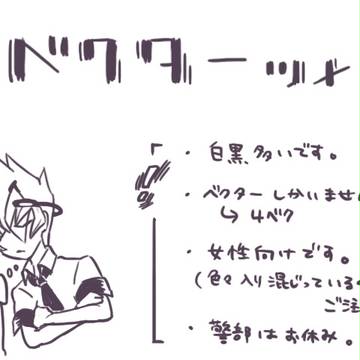 ベクターツメ
・白黒多いです。
・ベクターしかいません
↳4ベク
・女性向けです。
(色々入り混じっている
ご注
・警部はお休み。